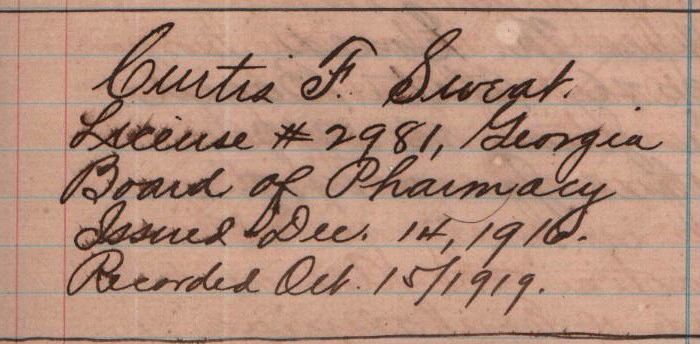 Curtis F. Sweat.
License # 2981, Georgia
Board of Pharmacy
Issued Dec. 14, 1916.
Recorded Oct. 15/1919.